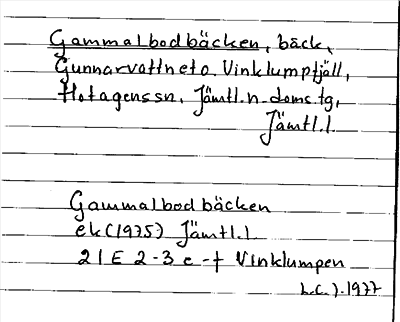 Gammalbodbäcken, bäck,
Gunnarvattnet o. Vinklumpfjäll,
Hotagens sn, Jämtl. n. doms.tg,
Jämtl. l
Gammalbodbäcken
ek (1975) Jämtl. l
21E 2-3 e-f Vinklumpen
1977